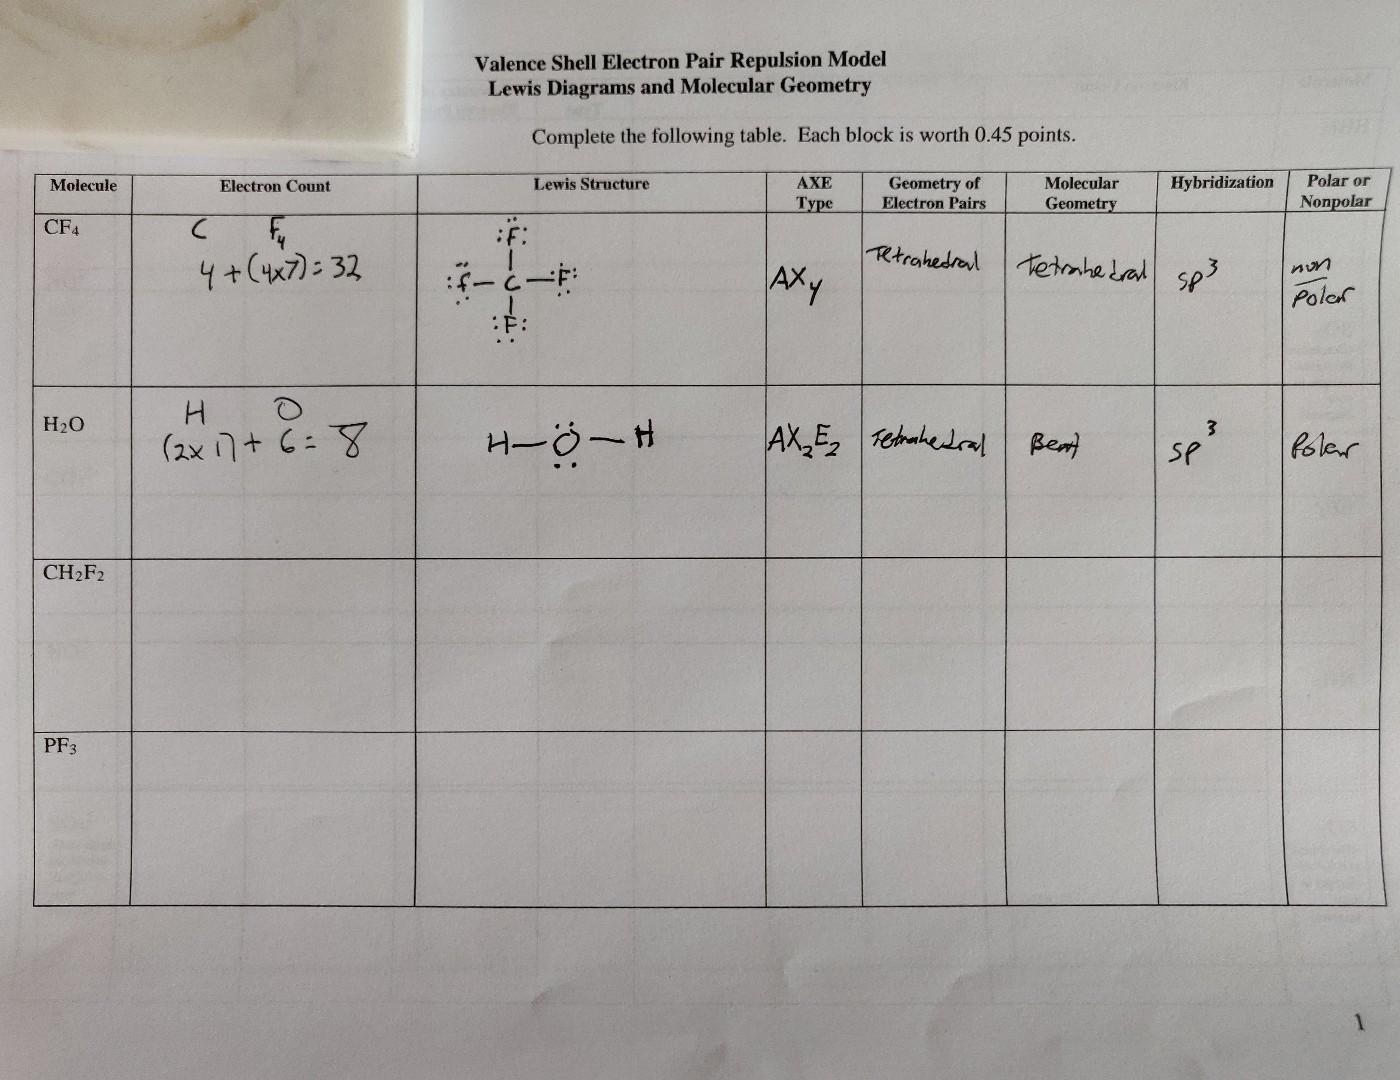 Valence Shell Electron Pair Repulsion Model
Lewis Diagrams and Molecular Geometry
Complete the following table. Each block is worth 0.45 points.
Molecule Electron Count Lewis Structure AXE Type Geometry of Electron Pairs Molecular Geometry Hybridization Polar or Nonpolar
CF₄
C F₄
4 + (4x7) = 32
:F:
:F — C — F:
:F:
AX₄
Tetrahedral
Tetrahedral
sp³
non
Polar
H₂O
H O
(2x1) + 6 = 8
H—O—H
AX₂E₂
Tetrahedral
Bent
sp³
Polar
CH₂F₂
PF₃
1